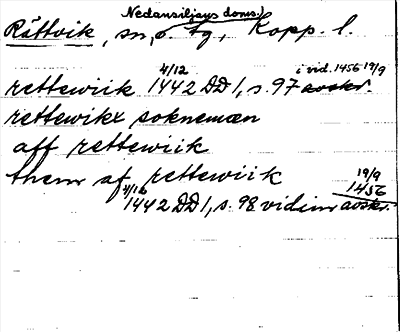 Nedansiljans doms.
Rättvik, sn, o. tg, Kopp. l.
4/12 i vid. 1456 19/9
rettewiik 1442 DD 1, s. 97 avskr.
rettewikx soknemæn
aff rettewiik
them af rettewiik 19/9
4/12 1456
1442 DD 1, s. 98 vidim avskr.